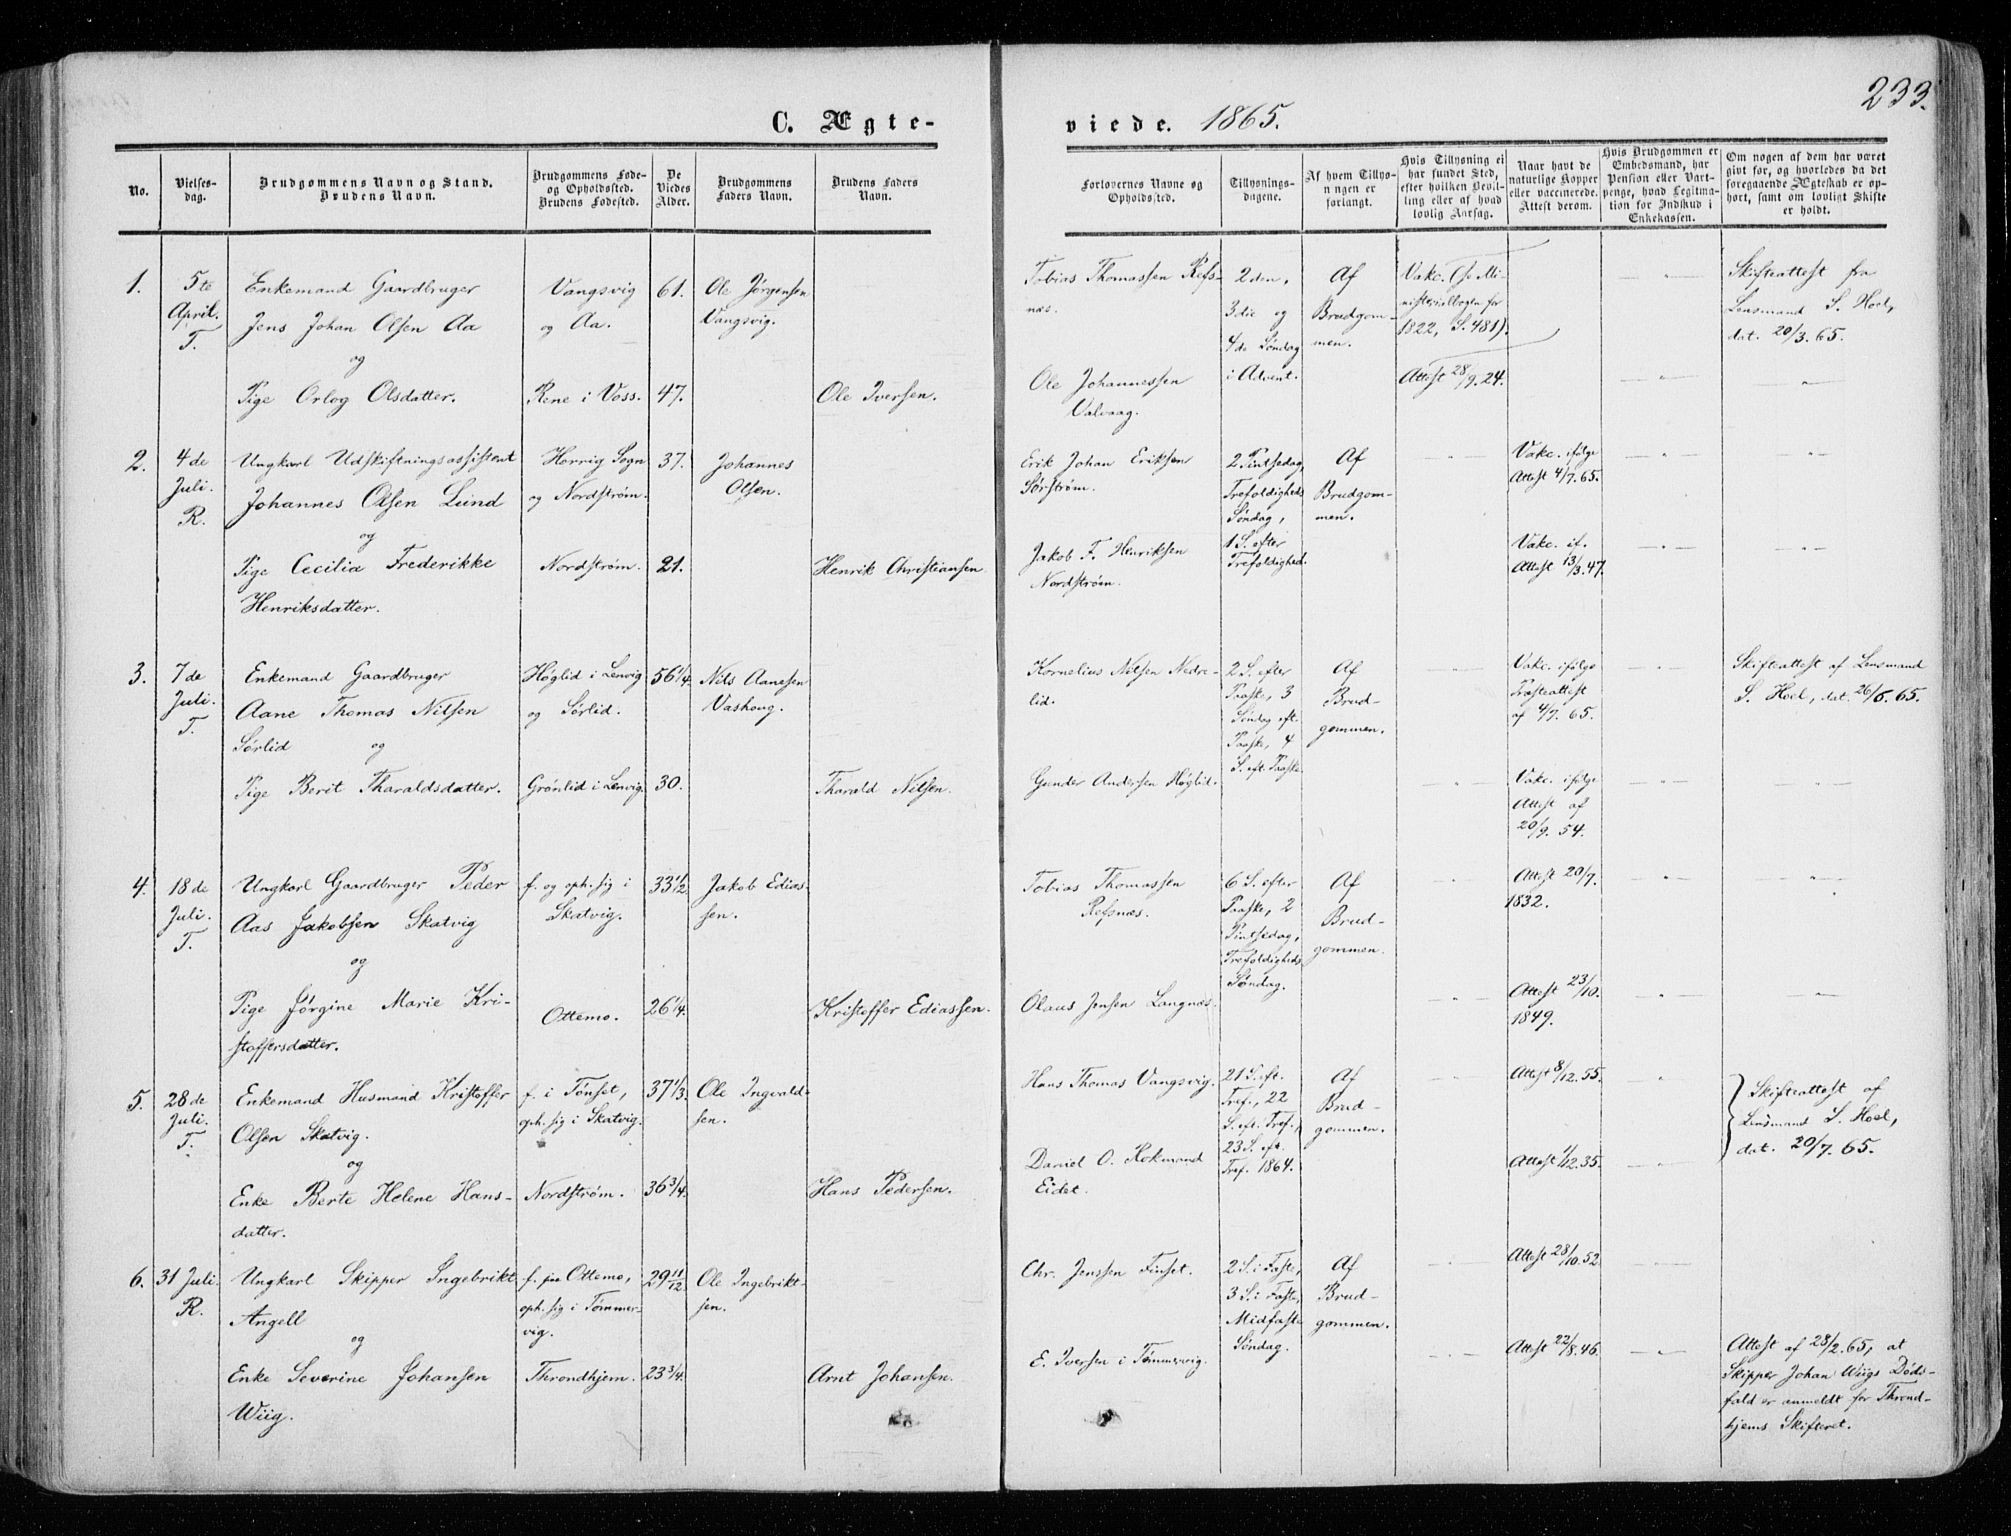 233.
C. Ægte-
viede. 1865.
No.
Vielses-
dag.
Brudgommens Navn og Stand.
Brudens Navn.
Brudgommens Føde-
og Opholdssted.
Brudens Fødested.
De
Viedes
Alder.
Brudgommens
Faders Navn.
Brudens Faders
Navn.
Forlovernes Navne og
Opholdssted.
Tillysnings-
dagene.
Af hvem Tillys-
ningen er
forlangt.
Hvis Tillysning ei
har fundet Sted,
efter hvilken Bevil-
ling eller af hvad
lovlig Aarsag.
Naar havt de
naturlige Kopper
eller vaccinerede.
Attest derom.
Hvis Brudgommen er
Embedsmand, har
Pension eller Vart-
penge, hvad Legitima-
tion for Indskud i
Enkekassen.
Om nogen af dem har været
gift før, og hvorledes da det
foregaaende Ægteskab er op-
hørt, samt om lovligt Skifte
er holdt.
1.
5te
April.
T.
Enkemand Gaardbruger
Jens Johan Olsen Aa
og
Pige Orlog Olsdatter.
Vangsvig
og Aa.
Rene i Voss.
61.
47.
Ole Jørgensen
Vangsvig.
Ole Iversen.
Tobias Thomassen Refs-
næs.
Ole Johannessen
Valvaag.
2den,
3die og
4de Søndag
i Advent.
Af
Brudgom-
men.
Vakc. (se Mi-
nisterialbogen for
1822, S. 481).
Attest 28/9. 24.
Skifteattest fra
Lensmand S. Hoel,
dat. 20/3. 65.
2.
4de
Juli.
R.
Ungkarl Udskiftningsassistent
Johannes Olsen Lund
og
Pige Cecilia Frederikke
Henriksdatter.
Herrig Sogn
og Nordstrøm.
Nordstrøm.
37.
21.
Johannes
Olsen.
Henrik Christiansen
Erik Johan Eriksen
Sørstrøm.
Jakob F. Henriksen
Nordstrøm.
2 Pintsedag,
Trefoldigheds
Søndag,
1 S. efter
Trefoldighed.
Af
Brudgom-
men.
Vakc. ifølge
Attest 4/7. 65.
Vakc. if.
Attest 13/3. 47.
3.
7de
Juli.
T.
Enkemand Gaardbruger
Aane Thomas Nilsen
Sørlid og
Pige Berit Tharaldsdatter.
Høglid i Lenvig
og Sørlid.
Grønlid i Lenvig.
56 1/4.
30.
Nils Aanesen
Vashaug.
Tharald Nilsen.
Kornelius Nilsen Nedre-
lid.
Gunder Andersen Høglid.
2 S. efter
Paaske, 3
Søndag eft.
Paaske, 4
S. eft. Paaske.
Af
Brud-
gommen.
Vakc. ifølge
Præsteattest
af 4/7. 65.
Vakc. ifølge
Attest af
20/9. 54.
Skifteattest af Lensmand
S. Hoel, dat. 26/6. 65.
4.
18de
Juli.
T.
Ungkarl Gaardbruger Peder
Aas Jakobsen Skatvig
og
Pige Jørgine Marie Kri-
stoffersdatter.
f. og oph. sig i
Skatvig.
Ottemo.
33 1/2
26 1/4.
Jakob Edias-
sen.
Kristoffer Ediassen.
Tobias Thomassen
Refsnæs.
Olaus Jensen Langnæs.
6 S. efter
Paaske, 2
Pintsedag,
Trefoldigheds
Søndag.
Af
Brud-
gommen.
Attest 20/7.
1832.
Attest 23/10.
1849.
5.
28de
Juli.
T.
Enkemand Husmand Kristoffer
Olsen Skatvig.
og
Enke Berte Helene Hans-
datter.
f. i Tønset,
oph. sig i Skatvig.
Nordstrøm.
37 1/3.
36 3/4.
Ole Ingvald-
sen.
Hans Pedersen.
Hans Thomas Vangsvig.
Daniel O. Rokmand
Eidet.
21 S. eft.
Tref., 22
S. eft. Tref.,
23 S. eft.
Tref. 1864.
Af
Brud-
gommen.
Attest 8/12. 55.
Attest 1/12. 35.
Skifteattest af
Lensmand S. Hoel,
dat. 20/7. 65.
6.
31 Juli.
R.
Ungkarl Skipper Ingebrikt
Angell
og
Enke Severine Johansen
Wiig.
f. paa Ottemo,
oph. sig i Tømmer-
vig.
Throndhjem.
29 11/12
23 3/4.
Ole Ingebrikt-
sen.
Arnt Johansen.
Chr. Jenssen Finset.
E. Iversen i Tømmervig.
2 S. i Faste,
3 S. i Faste,
Midfaste
Søndag.
Af
Brud-
gommen.
Attest 28/10. 52.
Attest 22/8. 46.
Attest af 28/2. 65, at
Skipper Johan Wiigs Døds-
fald er anmeldt for Thrond-
hjems Skifteret.